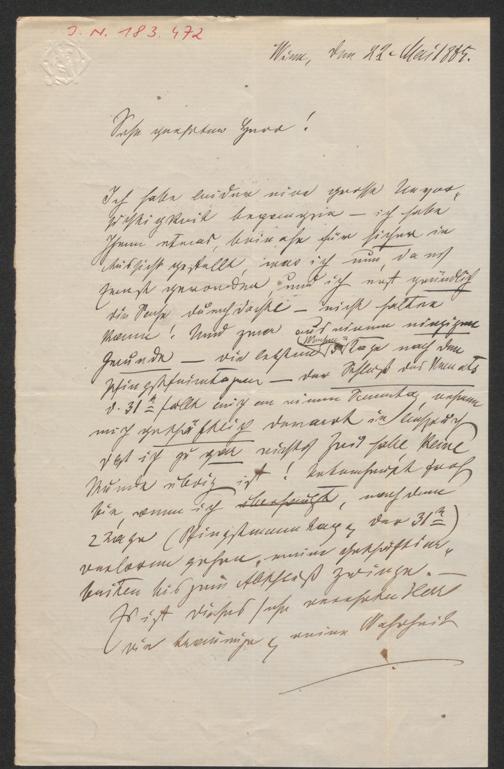 J. N. 183.472
Wien, den 22. Mai 1885.
Sehr geehrter Herr!
Ich habe leider eine grosse Unvor-
sichtigkeit begangen – ich habe
Ihnen etwas, beinahe für sicher in
Aussicht gestellt, was ich nun, da es
Ernst geworden, und ich erst gründlich
die Sache durchdachte – nicht halten
kann! Und zwar aus einem einzigen
Grunde – die letzten Tage nach den
Pfingstfeiertagen – der Schluß des Monats
d. 31 fällt auf einen Sonntag, nehmen
mich geschäftlich derart in Anspruch
daß ich zu gar nichts Zeit habe keine
Stunde übrig ist!
Sie, wenn ich überhaupt, nach dem
2 Tage (Pfingstmontag & der 31)
verloren gehen, meine Geschäftsar-
beiten bis zum Abschluß zwinge. –
Es ist dieses sehr verehrter Herr
die traurige & reine Wahrheit